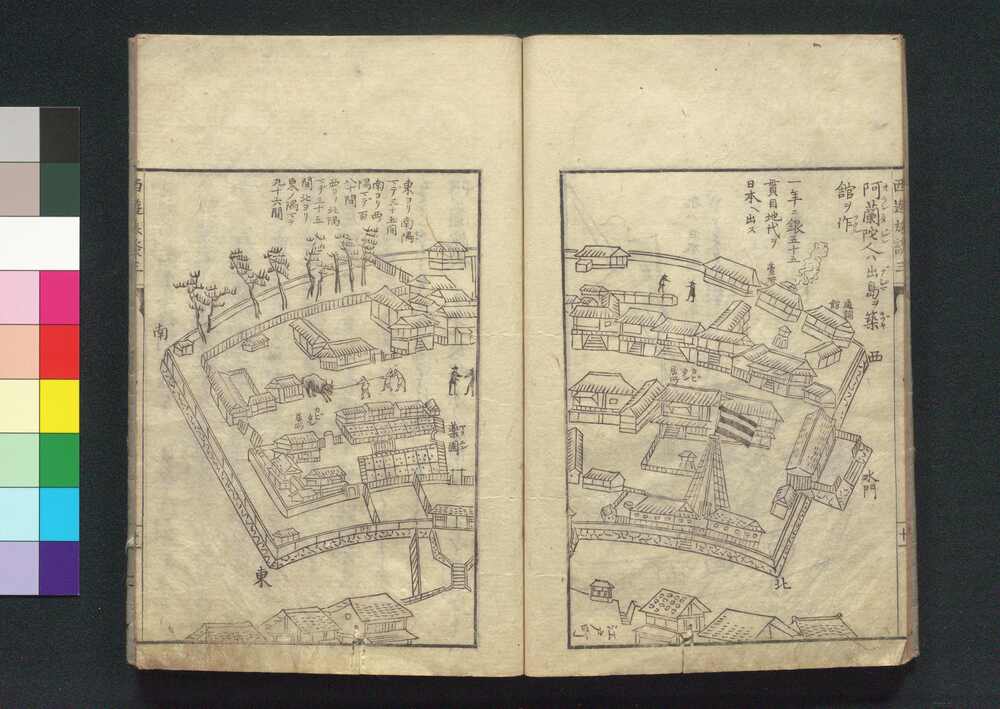 阿蘭陀人ヘ出島ヲ築
館ヲ作
一年ニ銀五十五
貫目地代ヲ
日本ヘ出ス
西
水門
北
江戸町
東ヨリ南隅
マデ三十五間
南ヨリ西
隅マデ百
八十間
西ヨリ北隅
マデ三十五
間北ヨリ
東ノ隅マデ
九十六間
南
菜園
東